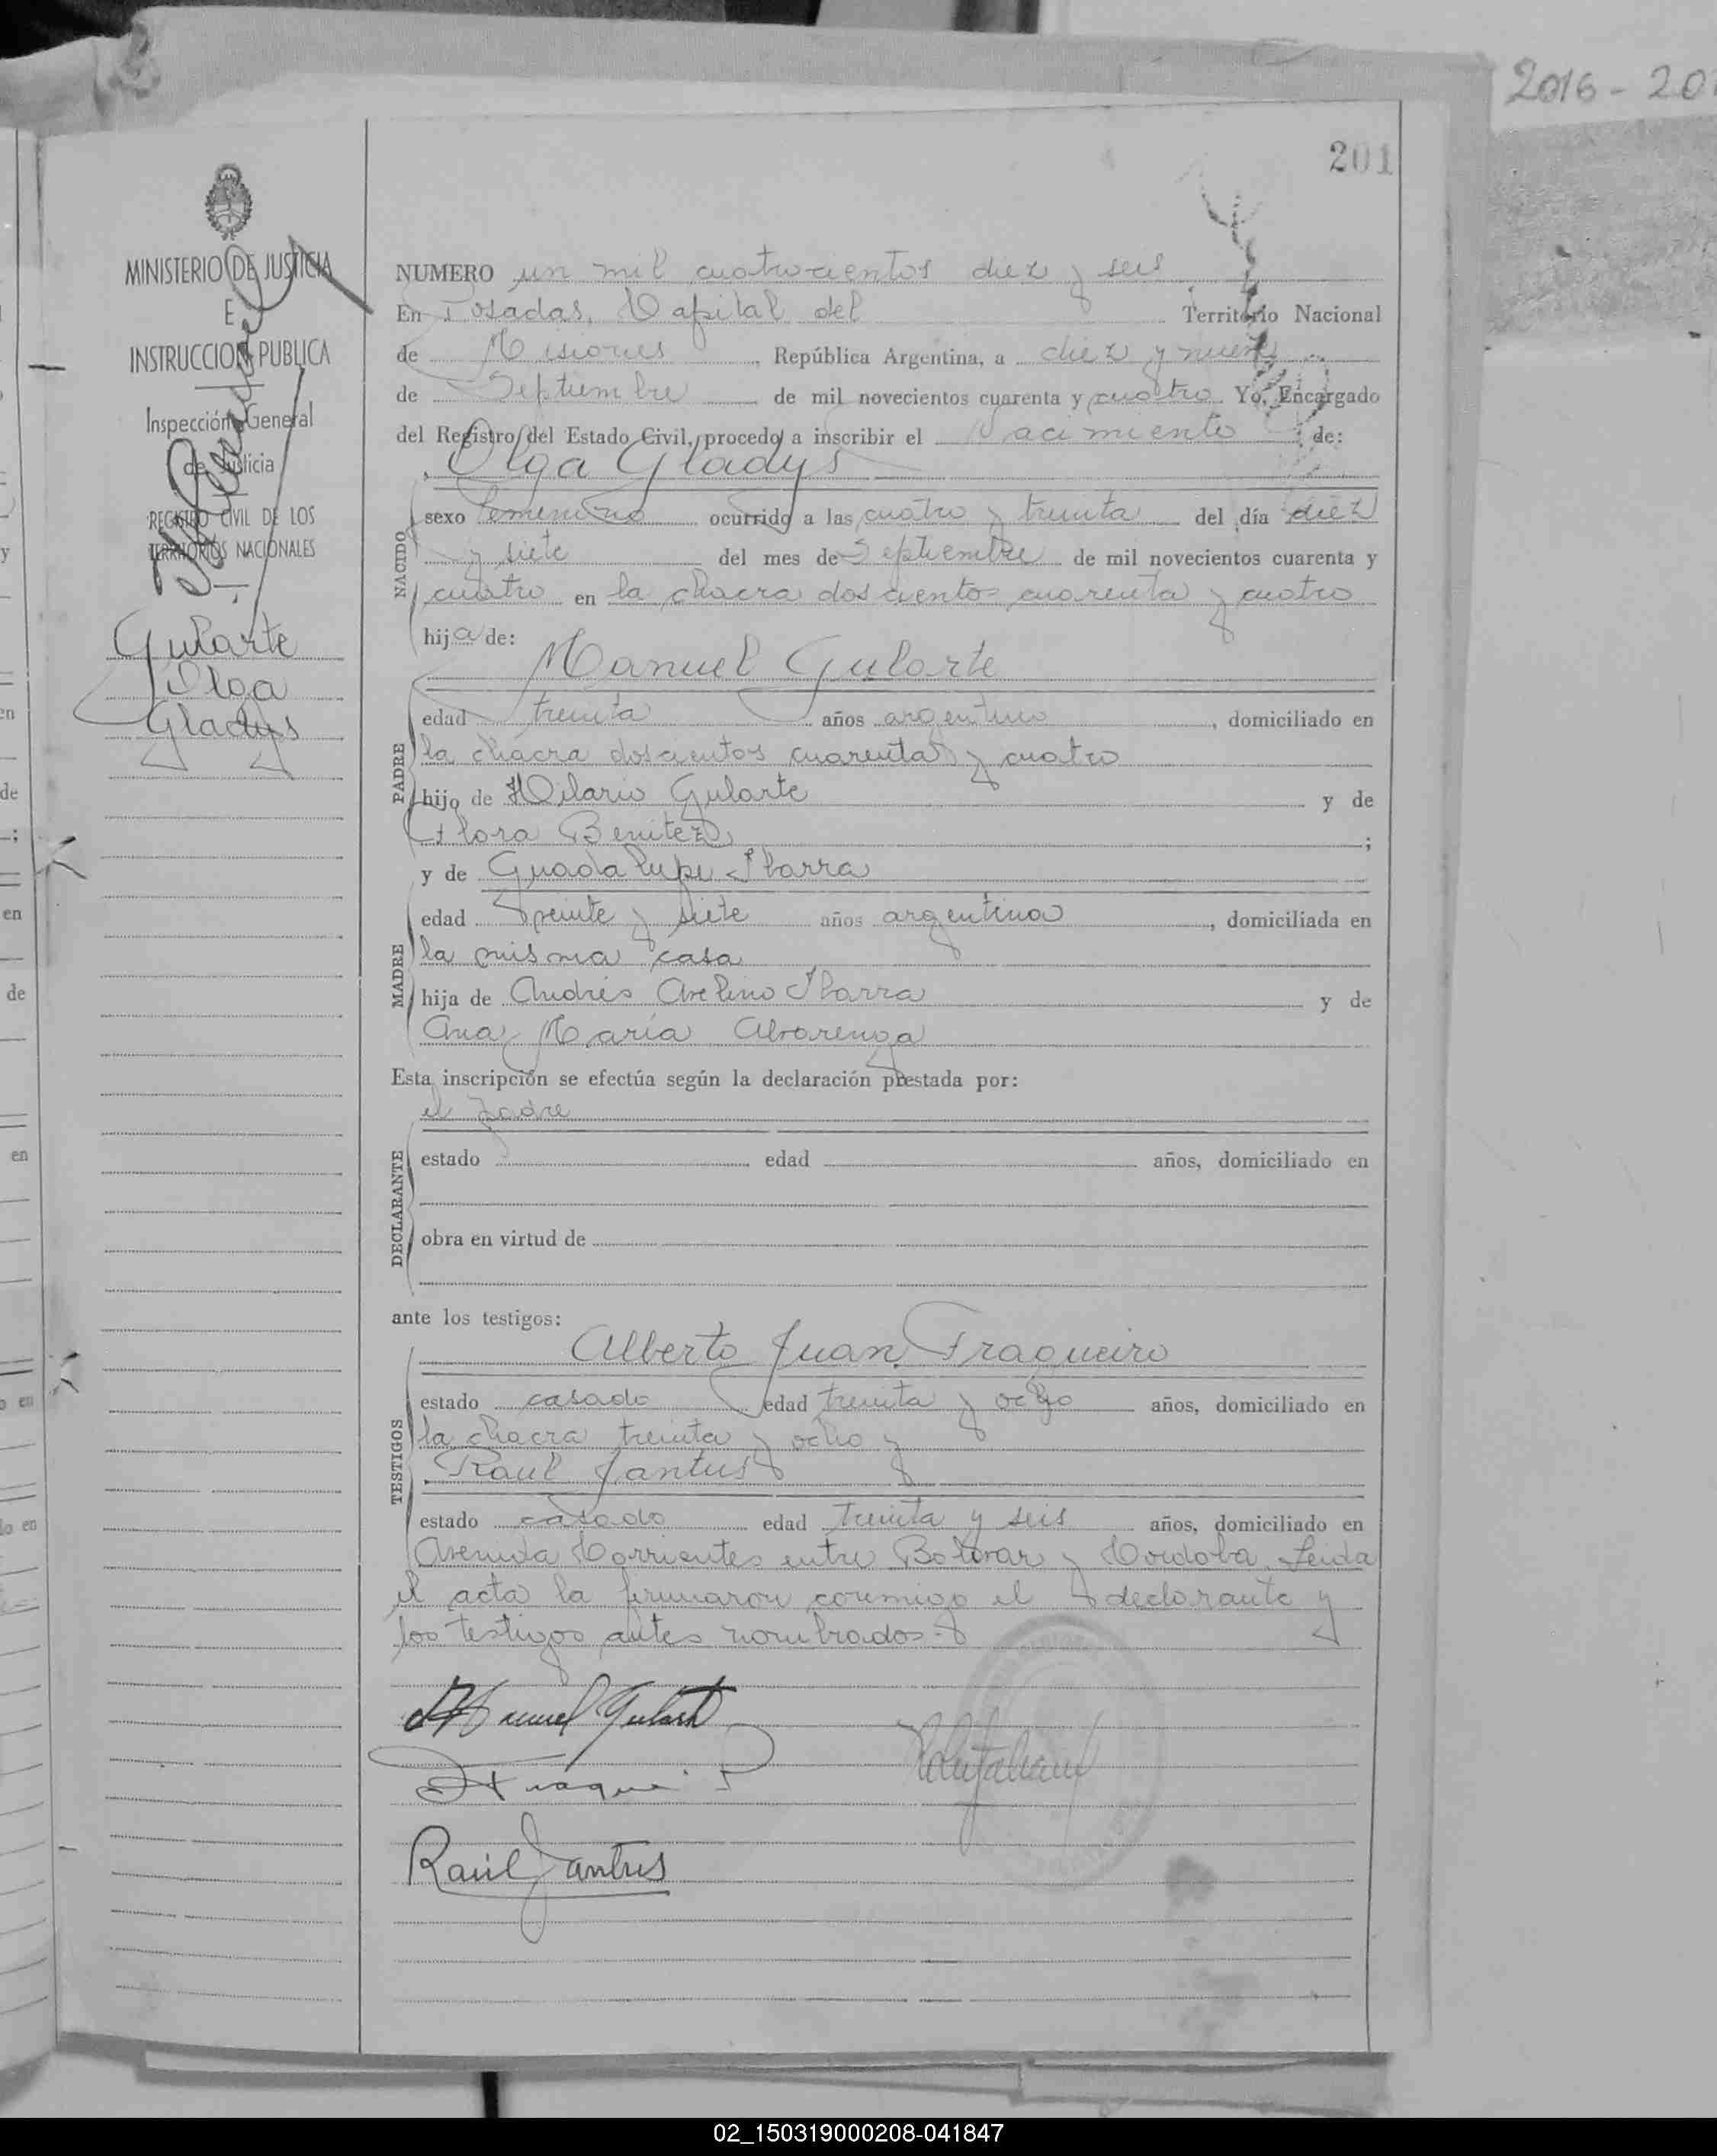 2016 - 20
201
MINISTERIO DE JUSTICIA
E
INSTRUCCION PUBLICA
Inspección General
de Justicia
REGISTRO CIVIL DE LOS
TERRITORIOS NACIONALES
Gularte
Olga
Gladys
NUMERO un mil cuatrocientos diez y seis
En Posadas, Capital del Territorio Nacional
de Misiones, República Argentina, a diez y nueve
de Septiembre de mil novecientos cuarenta y cuatro Yo, Encargado
del Registro del Estado Civil, procedo a inscribir el Nacimiento de:
Olga Gladys
NACIDO
sexo femenino ocurrido a las cuatro y treinta del día diez
y siete del mes de Septiembre de mil novecientos cuarenta y
cuatro en la chacra doscientos cuarenta y cuatro
hija de:
Manuel Gularte
PADRE
edad treinta años argentino, domiciliado en
la chacra doscientos cuarenta y cuatro
hijo de Hilario Gularte y de
Flora Benitez;
y de Guadalupe Ibarra
MADRE
edad veinte y siete años argentina, domiciliada en
la misma casa
hija de Andrés Avelino Ibarra y de
Ana María Alvarenga
Esta inscripción se efectúa según la declaración prestada por:
el padre
DECLARANTE
estado edad años, domiciliado en
obra en virtud de
ante los testigos:
Alberto Juan Fragueiro
TESTIGOS
estado casado edad treinta y ocho años, domiciliado en
la chacra treinta y ocho y
Raul Jantus
estado casado edad treinta y seis años, domiciliado en
Avenida Corrientes entre Bolivar y Cordoba. Leida
el acta la firmaron conmigo el declarante y
los testigos antes nombrados.
Manuel Gularte
Raúl Jantus
02_150319000208-041847